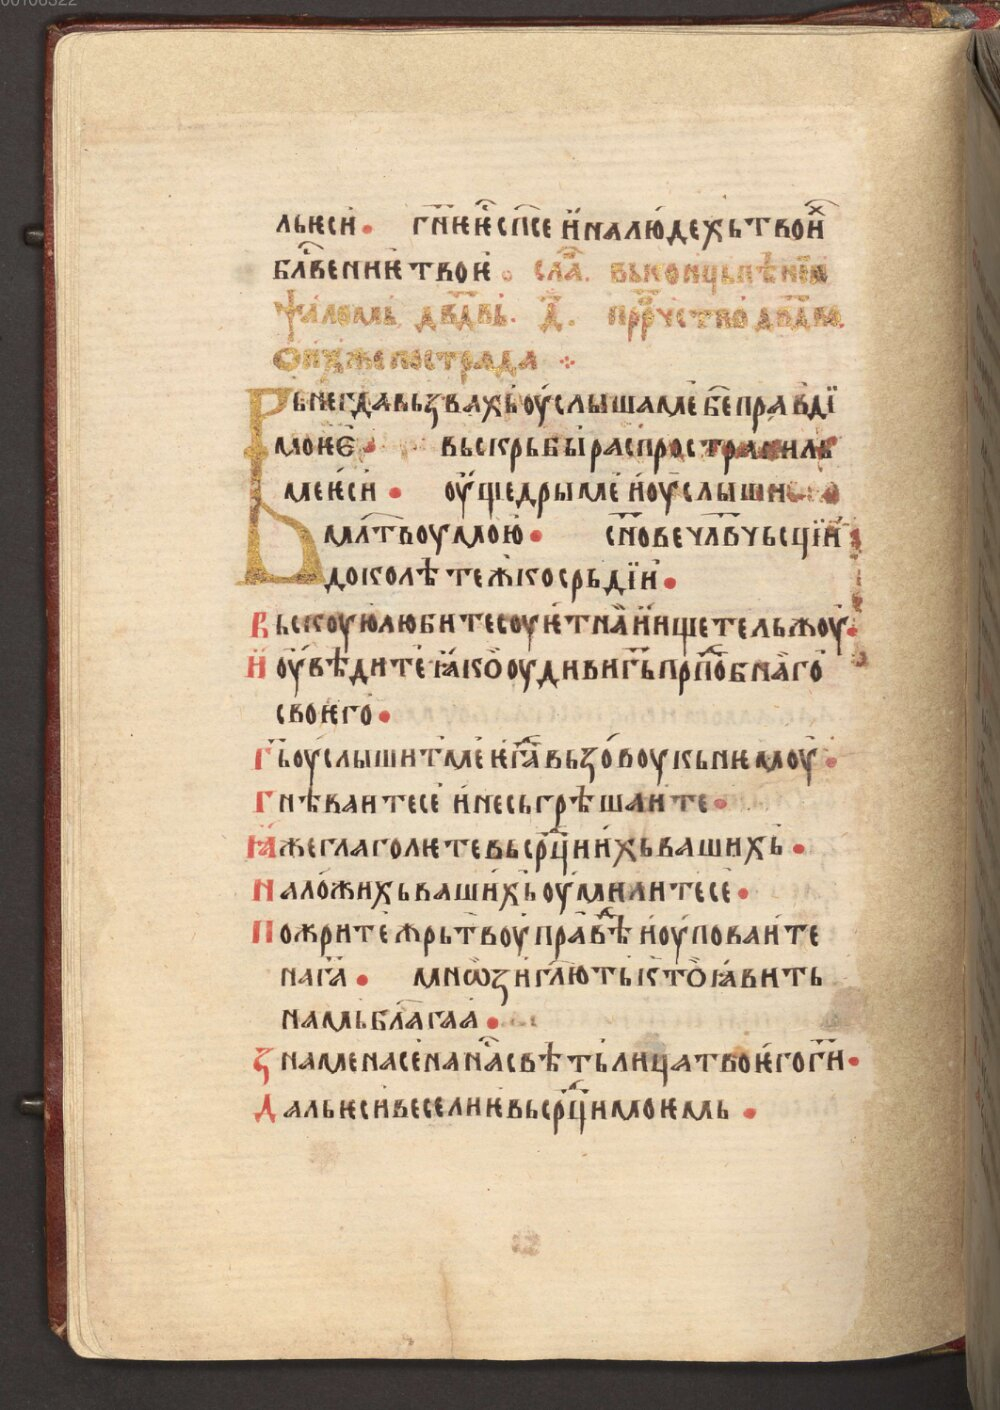 00106322
льѥси • гн҃ѥ ѥ҆ сп҃се и҆ на лю́дехь твои҆х
бл҃вениѥ твоѥ • сла҃. вь коньць пѣ́нїю
ѱа́ломь, дв҃двь. д҃. прⷪ҇рчство дв҃дво
ѡ нихже пострада
Вьнегда вьзвахь оу҆слыша ме б҃е правди
моѥѥ • вь скрьбы распространиль
ме ѥ҆си • оу҆щедры ме и҆ оу҆слыши
мл҃твоу мою • сн҃ове чл҃вчьсции
доколѣ тежкосрьдїи •
Вьскоую любите соуѥтнаа и҆ ищете льжоу •
И оу҆вѣдите ꙗ҆ко оу҆диви г҃ь прпⷣобнаго
своѥго •
Г҃ь оу҆слышит ме ѥгда вьзовоу кь нѥмоу •
Гнѣваите се и҆ не сьгрѣшаите •
Ꙗже глаголѥте вь срⷣцихь вашихь •
На ложихь вашихь оу҆милите се •
Пожрите жрьтвоу правⷣѣ и҆ оу҆поваите
на га҃ • мноѡзи гл҃ють кто ꙗ҆вить
намь бл҃гаа •
Знамена се на на҃с свѣть лица твоѥго гн҃и •
Даль ѥси весѥлиѥ вь срⷣци моѥмь •